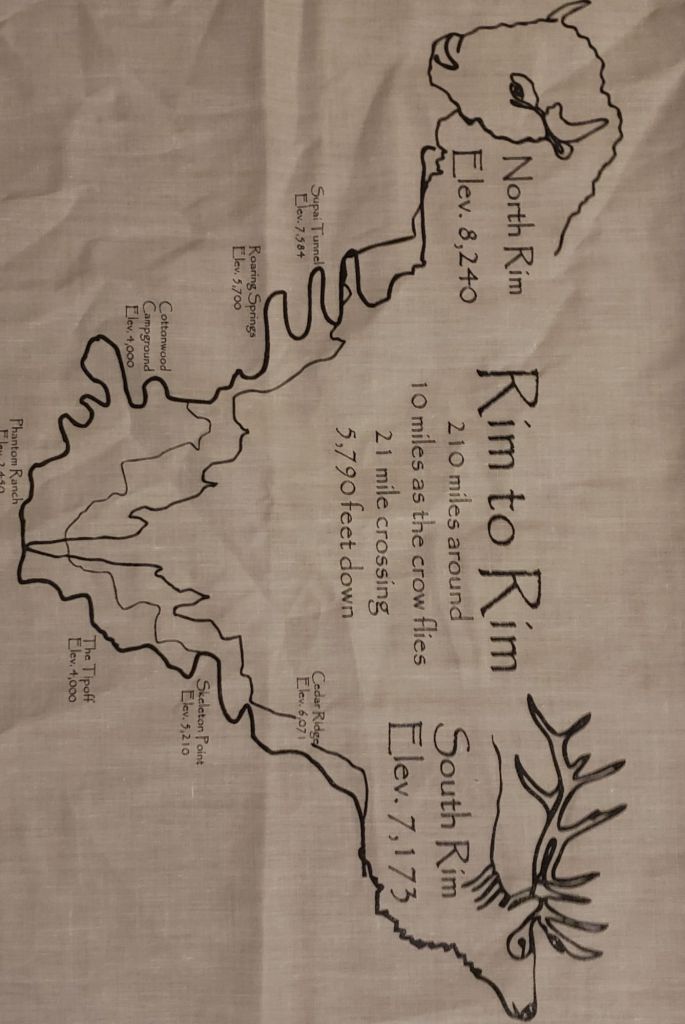 Rim to Rim
210 miles around
10 miles as the crow flies
21 mile crossing
5,790 feet down
North Rim
Elev. 8,240
Supai Tunnel
Elev. 7,584
Roaring Springs
Elev. 5,700
Cottonwood
Campground
Elev. 4,000
Phantom Ranch
South Rim
Elev. 7,173
Cedar Ridge
Elev. 6,071
Skeleton Point
Elev. 5,210
The Tipoff
Elev. 4,000